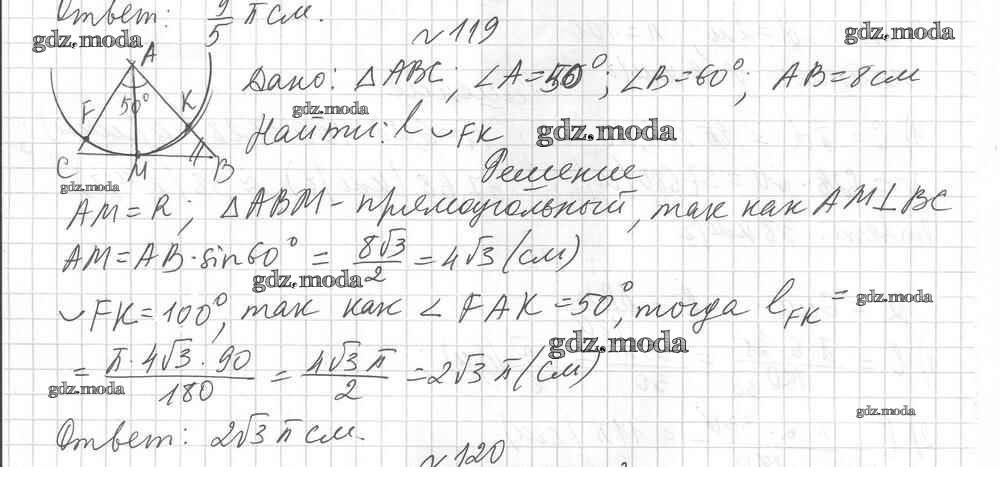 Ответ: 9/5 π см.
№119
gdz.moda
gdz.moda
A
F 50° K
C M B
Дано: △ABC; ∠A=50°; ∠B=60°; AB=8см
gdz.moda
Найти: l ◡FK gdz.moda
Решение
gdz.moda
AM=R; △ABM - прямоугольный, так как AM⊥BC
AM=AB·sin60° = 8√3/2 = 4√3 (см)
gdz.moda
◡FK=100°, так как ∠FAK=50°, тогда l FK = gdz.moda
gdz.moda
= π·4√3·90/180 = 4√3π/2 = 2√3π (см)
gdz.moda
gdz.moda
Ответ: 2√3 π см.
№120